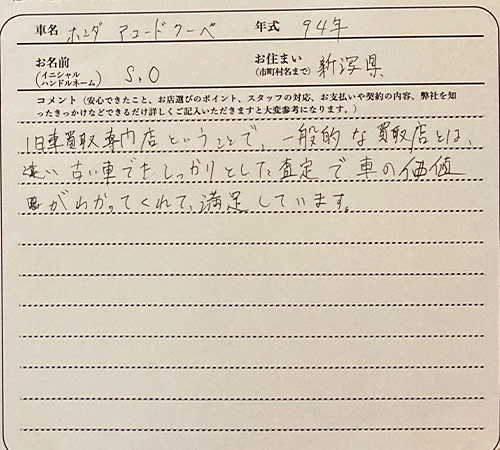 車名 ホンダ アコードクーペ 年式 94年
お名前 (イニシャル ハンドルネーム) S.O お住まい (市町村名まで) 新潟県
コメント(安心できたこと、お店選びのポイント、スタッフの対応、お支払いや契約の内容、弊社を知
ったきっかけなどできるだけ詳しくご記入いただきますと大変参考になります。)
旧車買取専門店ということで、一般的な買取店とは、
違い 古い車でもしっかりとした査定で車の価値
がわかってくれて、満足しています。